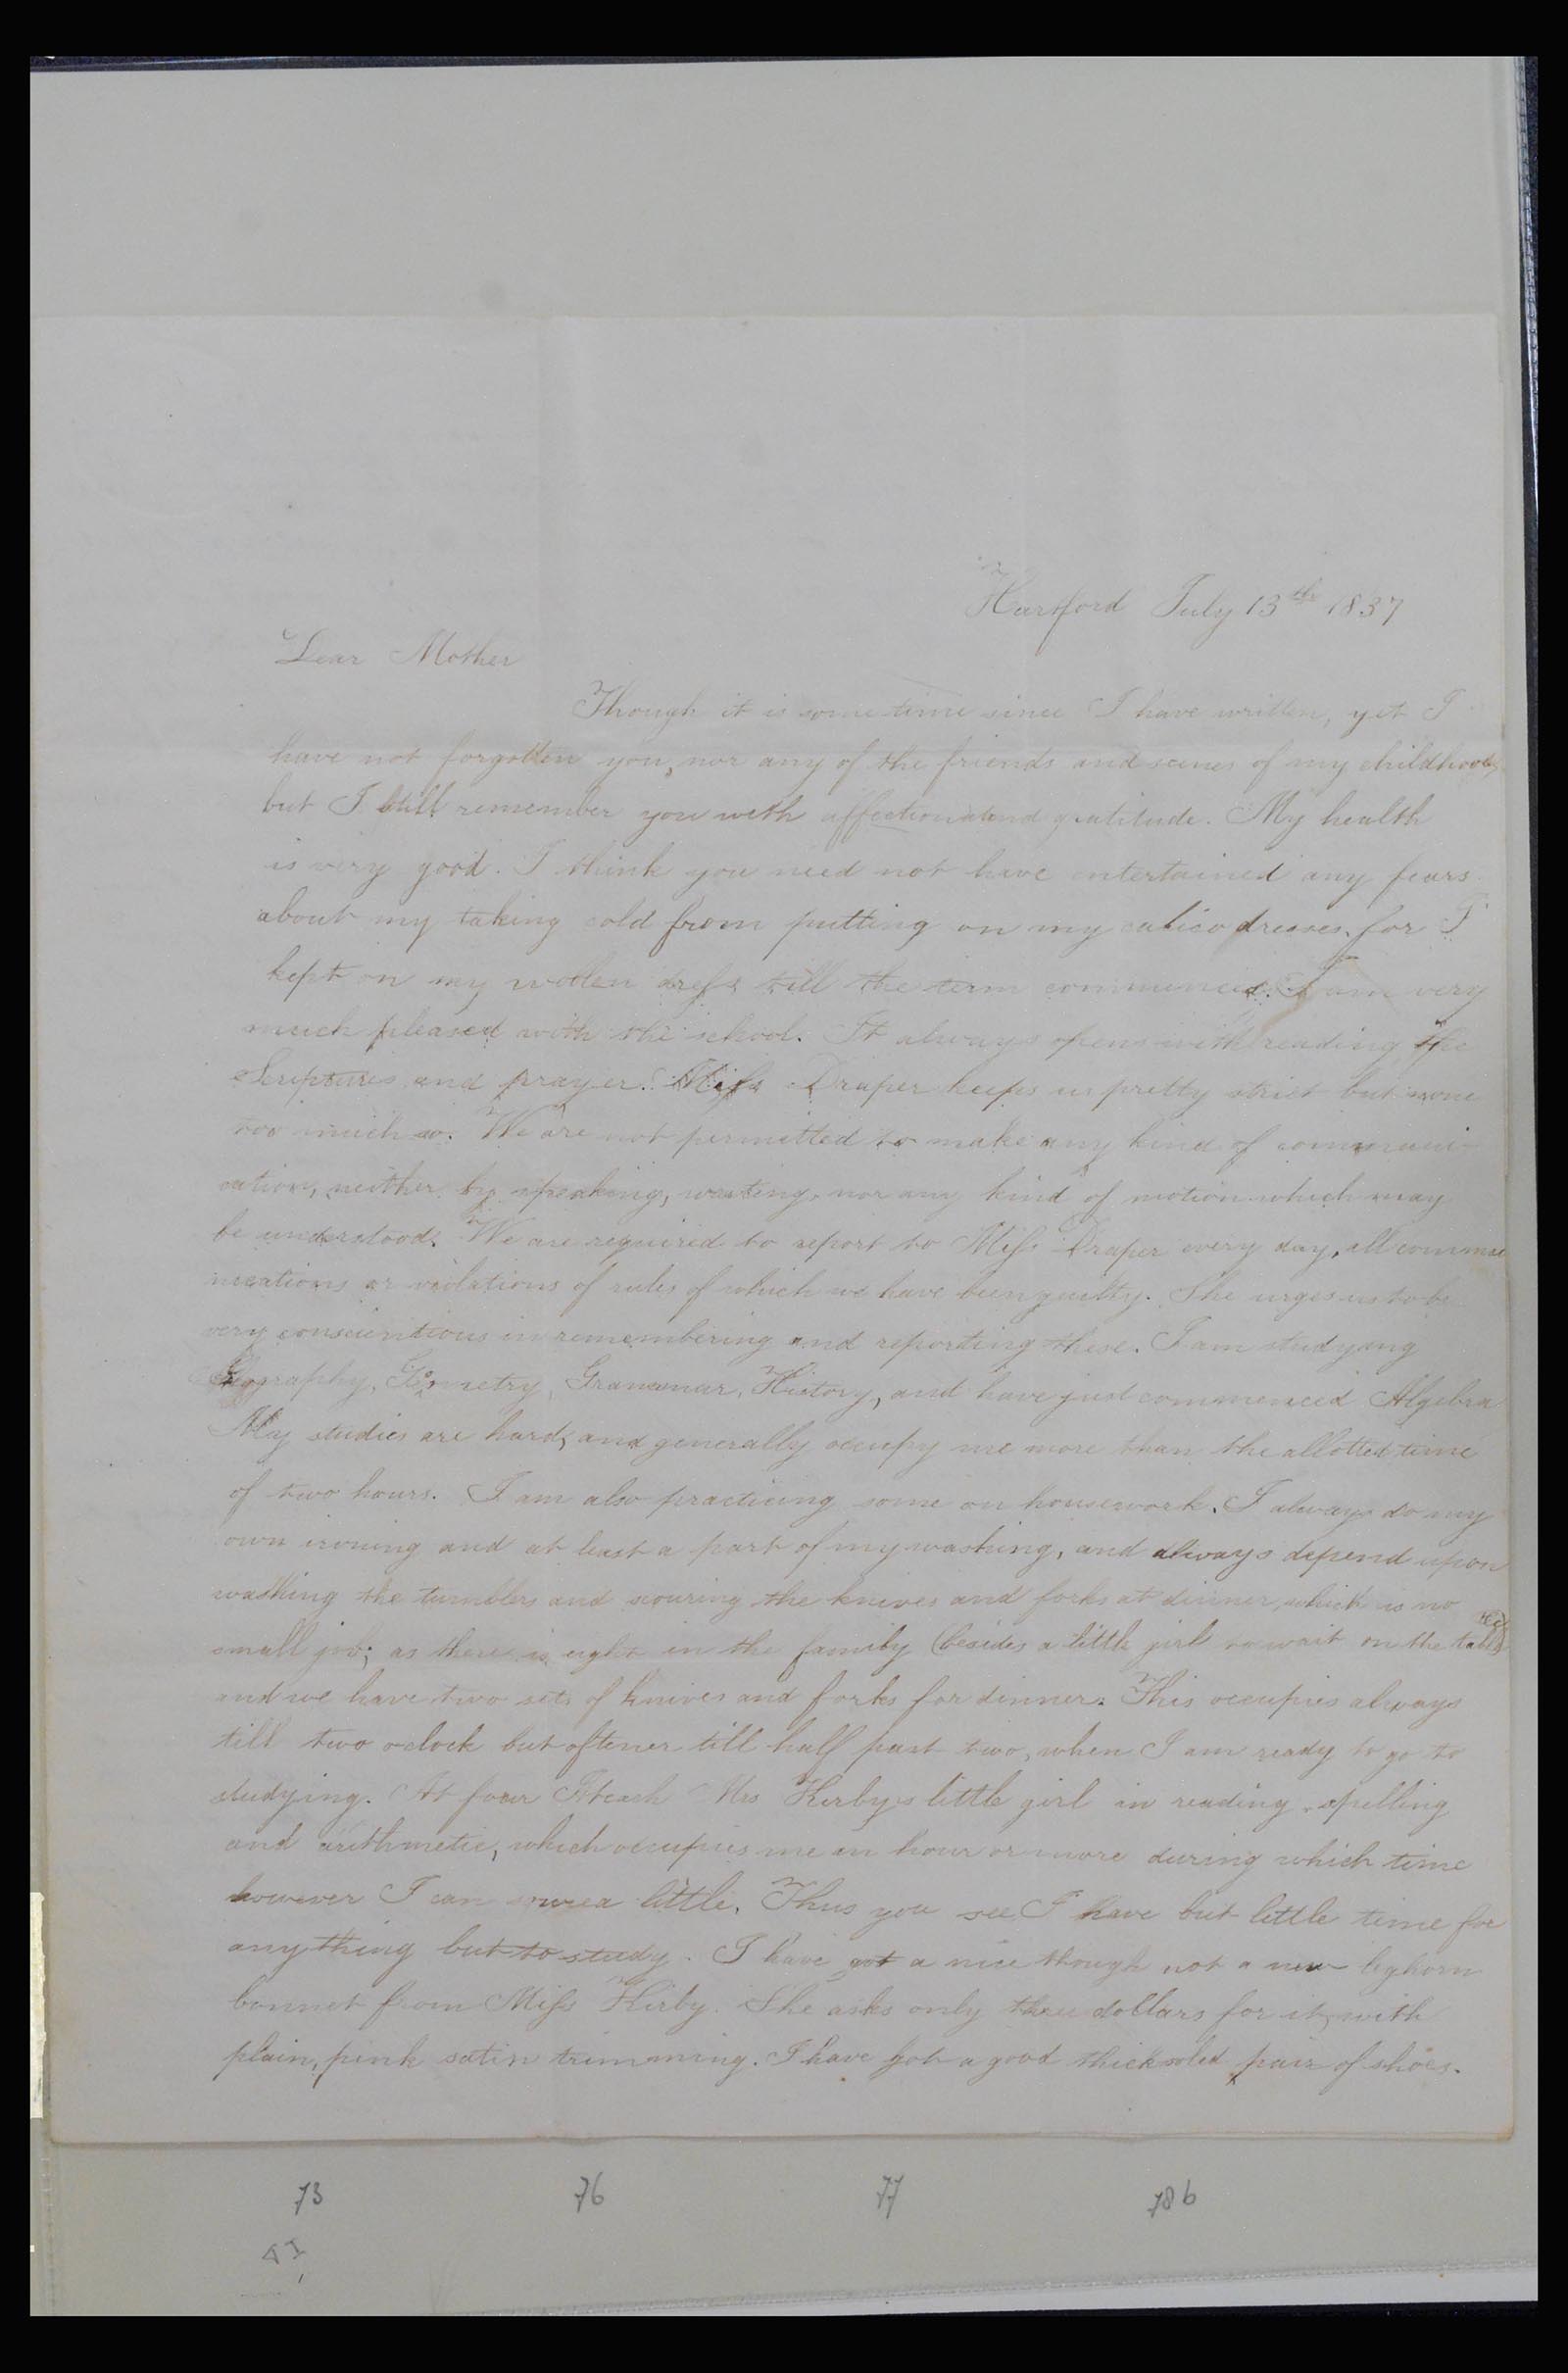 Hartford July 13th 1837
Dear Mother
Though it is some time since I have written, yet I
have not forgotten you, nor any of the friends and scenes of my childhood,
but I still remember you with affection and gratitude. My health
is very good. I think you need not have entertained any fears
about my taking cold from putting on my calico dresses, for I
kept on my woolen dress till the term commenced. I am very
much pleased with the school. It always opens with reading the
Scriptures and prayer. Miss Draper keeps us pretty strict but none
too much so. We are not permitted to make any kind of communi-
cation, neither by speaking, writing, nor any kind of motion which may
be understood. We are required to report to Miss Draper every day, all commu
nications or violations of rules of which we have been guilty. She urges us to be
very conscientious in remembering and reporting these. I am studying
Geography, Geometry, Grammar, History, and have just commenced Algebra
My studies are hard, and generally occupy me more than the allotted time
of two hours. I am also practicing some on housework. I always do my
own ironing and at least a part of my washing, and always depend upon
washing the tumblers and scouring the knives and forks at dinner, which is no
small job; as there is eight in the family (besides a little girl to wait on the table)
and we have two sets of knives and forks for dinner. This occupies always
till two oclock but oftener till half past two, when I am ready to go to
studying. At four I teach Mrs Kirby's little girl in reading, spelling
and arithmetic, which occupies me an hour or more during which time
however I can sew a little. Thus you see I have but little time for
any thing but to study. I have got a nice though not a new leghorn
bonnet from Miss Kirby. She asks only three dollars for it, with
plain, pink satin trimming. I have got a good thick soled pair of shoes.
73 76 77 78b